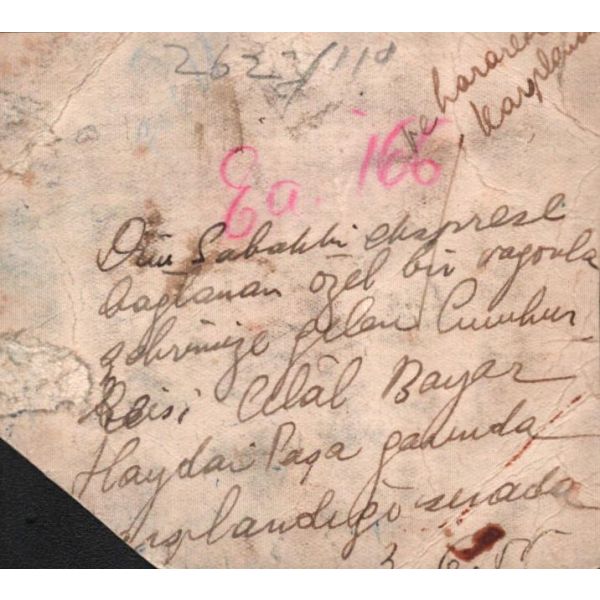 2622/110
ve hararetle
karşılanır
Ea. 166
Dün Sabahki ekspresle
bağlanan özel bir vagonla
şehrimize gelen Cumhur
Reisi Celâl Bayar
Haydar Paşa garında
karşılandığı sırada